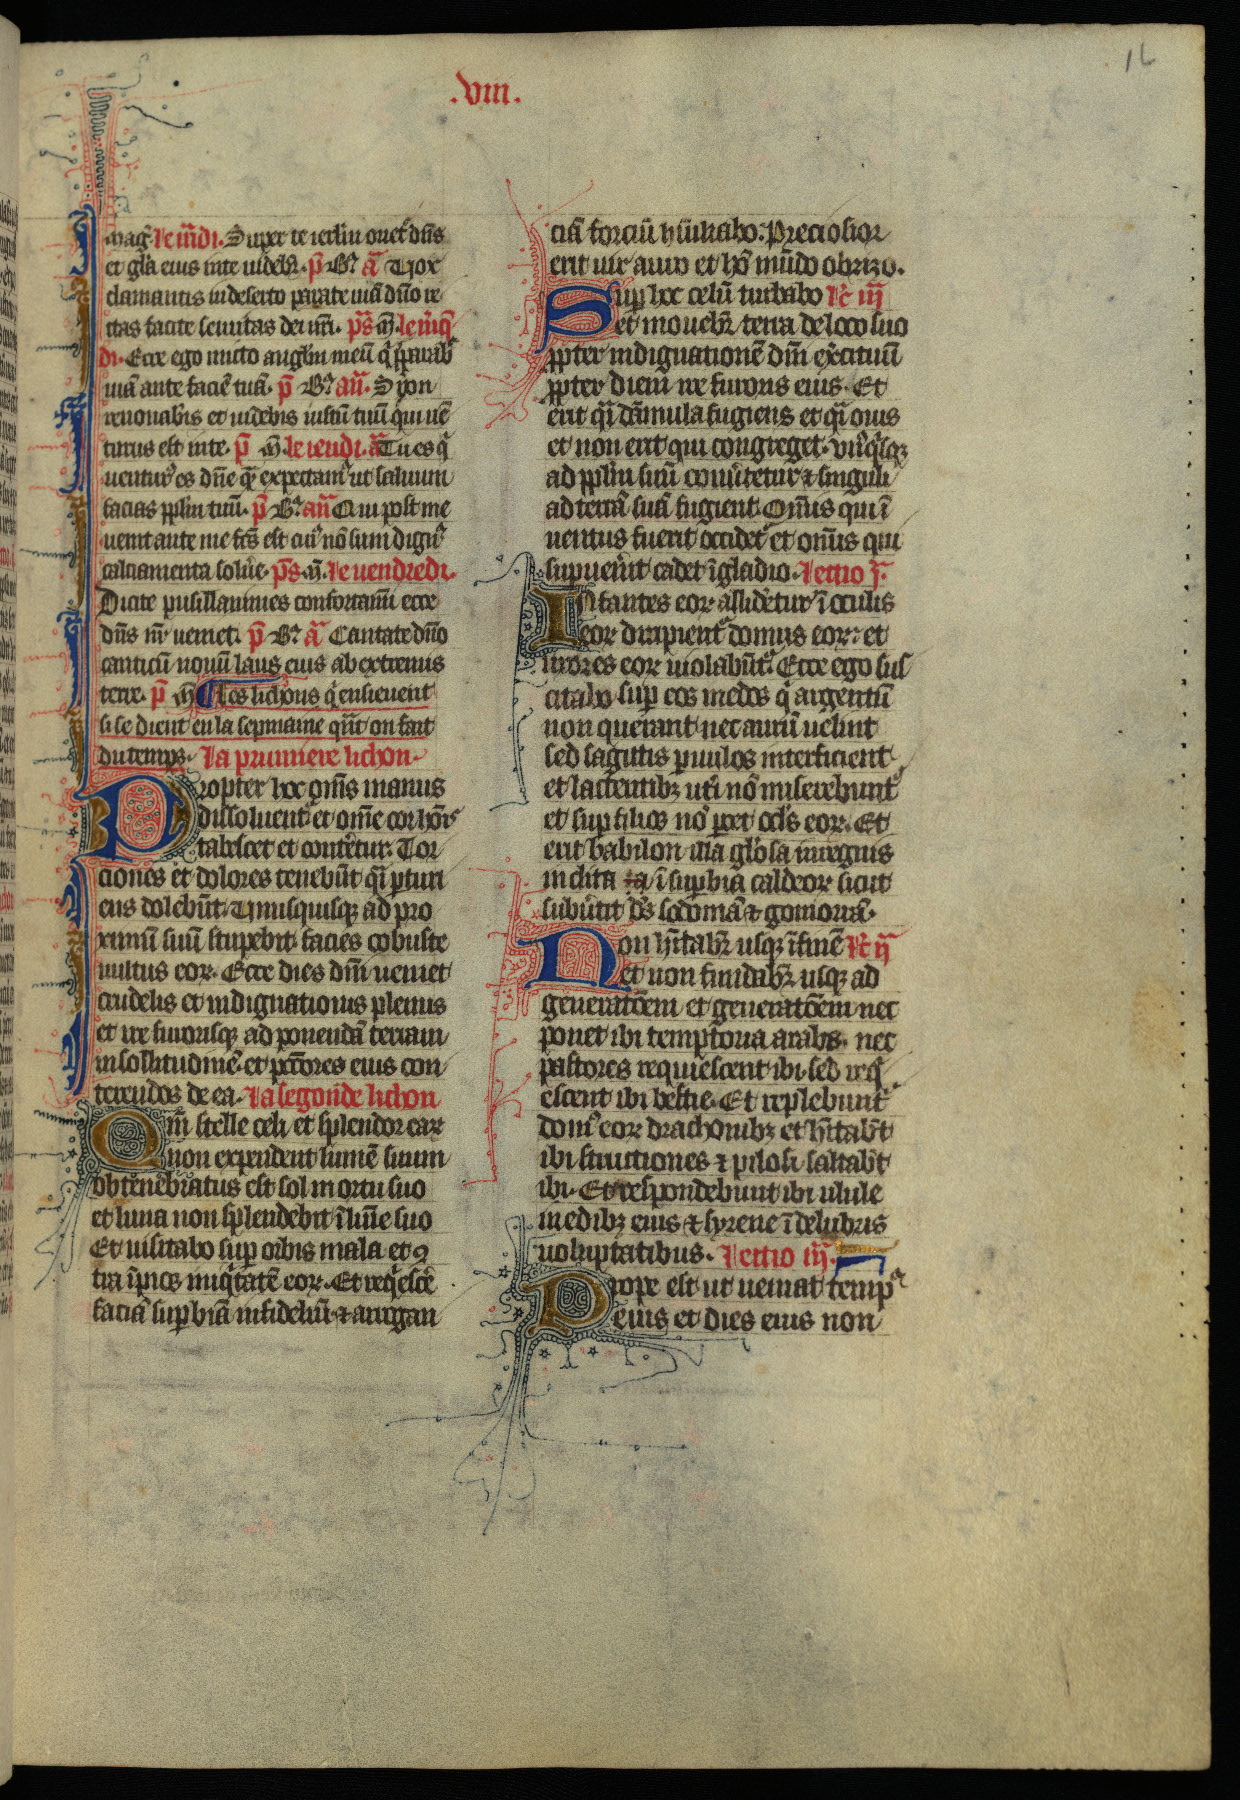 .viii.
16
mag̃. le m̃di. Super te ierl̃m oriet᷑ dñs
et gl̃a eius in te uideb᷑r. p̃ B᷑. ã Uox
clamantis in deserto parate uiã dño re
ctas facite semitas dei nr̃i. p̃s. m̃. le iuesq̃
di. Ecce ego mitto angl̃m meũ q̃ p̃parab᷑
uiã ante faciẽ tuã. p̃ B᷑. añ. Syon
renouabis et uidebis iustũ tuũ qui uẽ
turus est in te. p̃ m̃. le iendi. ã Tu es q̃
uentur᷑ es dñe q̃ expectam᷑ ut saluum
facias ppl̃m tuũ. p̃ B᷑. añ Qui post me
uenit ante me fc̃s est cui᷑ nõ sum dign᷑
calciamenta solũe. p̃s. m̃. le uendredi.
Dicite pusillanimes confortamĩ ecce
dñs nr̃ ueniet. p̃ B᷑. ã Cantate dño
canticũ nouũ laus eius ab extremis
terre. p̃ m̃ Les lichons q̃ ensieuent
si se dient en la sepmaine qũt on fait
du temps. La prumiere lichon.
Propter hoc om̃s manus
dissoluent᷑ et om̃e cor hoĩs
tabescet et conte᷑tur. Tor
ciones et dolores tenebũt q̃i pturi
ens dolebũt. Unusquisq; ad pro
ximũ suũ stupebit. facies cobuste
uultus eor᷑. Ecce dies dñi ueniet
crudelis et indignationis plenus
et ire furorisq; ad ponendã terram
in solitudinẽ. et pc̃tores eius con
terendos de ea. La segonde lichon
Qm̃ stelle celi et splendor ear᷑
non expendent lumẽ suum
obtenebratus est sol in ortu suo
et luna non splendebit ĩ lũie suo
Et uisitabo sup orbis mala et 9
tra ĩpios iniq̃tatẽ eor᷑. Et req̃escẽ
faciã superbiã infideliũ. & arrogan
ciã forciũ hũiliabo. Preciosior
erit uir auro et hõ mũdo obrizo.
Sup hoc celũ turbabo R᷑c iii
et mouebr᷑ terra de loco suo
ppter indignationẽ dñi exẽcituũ
ppter diem ire furoris eius. Et
erit q̃i dãmula fugiens et q̃i ouis
et non erit qui congreget. vn᷑q̃sq;
ad ppl̃m suũ conũtetur & singuli
ad terrã suã fugient. Om̃is qui ĩ
uentus fuerit occidet᷑ et om̃is qui
supueñit cadet ĩ gladio. Lectio i᷑.
Infantes eor᷑ allidẽtur ĩ oculis
eor᷑ diripient᷑ domus eor᷑. et
uxores eor᷑ uiolabũt᷑. Ecce ego sus
citabo sup eos medos q̃ argentũ
non querant nec aurũ uelint
sed sagittis puulos interficient
et lactentib; ut̃i nõ miserebunt᷑
et sup filios nõ pcet ocls̃ eor᷑. Et
erit babilon illa gl̃osa in regnis
inclita ĩ supbia caldeor᷑ sicut
subũtit ds̃ sodomã & gomorrã.
Non hĩtab᷑r usq; ĩ finẽ R᷑c ii
et non fundab᷑r usq; ad
generatõem et generatõem nec
ponet ibi temptoria arabs. nec
pastores requiescent ibi. sed req̃
escent ibi bestie. Et replebunt᷑
dom᷑ eor᷑ drachonib; et hĩtabt̃
ibi strutiones & pilosi saltabt̃
ibi. Et respondebunt ibi ulule
in edib; eius & syrene ĩ delubris
uoluptatibus. Lectio iii.
Prope est ut ueniat temp᷑
eius et dies eius non